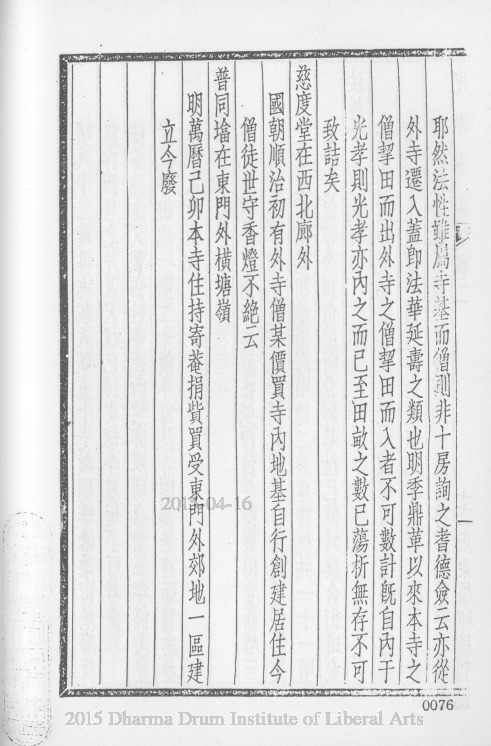 耶然法性雖屬寺基而僧則非十房詢之耆德僉云亦從
外寺遷入蓋卽法華延壽之類也明季鼎革以來本寺之
僧挈田而出外寺之僧挈田而入者不可數計旣自內于
光孝則光孝亦內之而已至田畝之數已蕩析無存不可
致詰矣
慈度堂在西北廊外
國朝順治初有外寺僧某價買寺內地基自行創建居住今
僧徒世守香燈不絕云
普同墖在東門外橫塘嶺
明萬曆己卯本寺住持寄菴捐貲買受東門外郊地一區建
立今廢
0076
2015-04-16
2015 Dharma Drum Institute of Liberal Arts